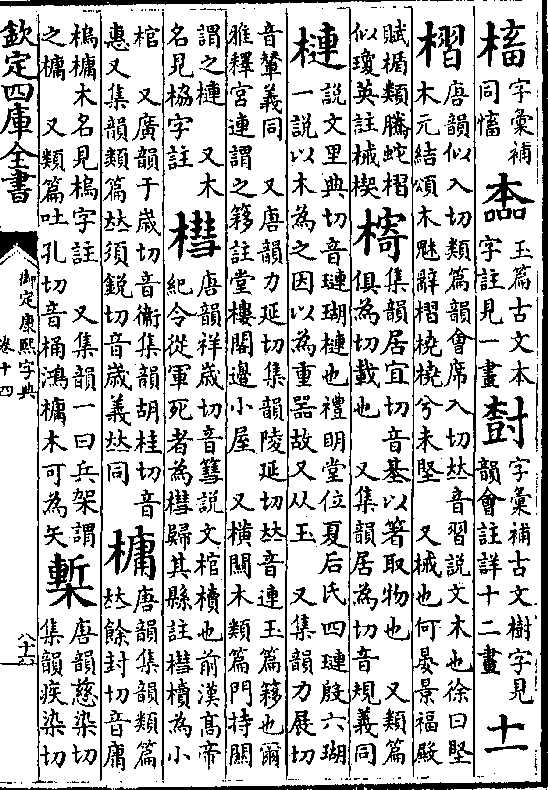 槒 字彙補
同慉
㮺 玉篇古文本
字註見一畫
字彙補古文樹字見
韻會註詳十二畫
十一
槢 唐韻似入切類篇韻會席入切𠀤音習說文木也徐曰堅
木元結頌木魅辭槢橈橈兮未堅　又械也何晏景福殿
賦楯類騰蛇槢
似瓊英註械楔
集韻居宜切音基以箸取物也　又類篇
俱為切載也　又集韻居為切音規義同
槤 說文里典切音璉瑚槤也禮明堂位夏后氏四璉殷六瑚
一說以木為之因以為重器故又从玉　又集韻力展切
音輦義同　又唐韻力延切集韻陵延切𠀤音連玉篇簃也爾
雅釋宮連謂之簃註堂樓閣邊小屋　又橫關木類篇門持關
謂之槤　又木
名見㭠字註
槥 唐韻祥歲切音篲說文棺櫝也前漢高帝
紀令從軍死者為槥歸其縣註槥櫝為小
棺　又廣韻于歲切音衞集韻胡桂切音
惠又集韻類篇𠀤須銳切音歲義𠀤同
槦 唐韻集韻類篇
𠀤餘封切音庸
榪槦木名見榪字註　又集韻一曰兵架謂
之槦　又類篇吐孔切音桶鴻槦木可為矢
槧 唐韻慈染切
集韻疾染切
欽定四庫全書
御定康熙字典
卷十四
八十六